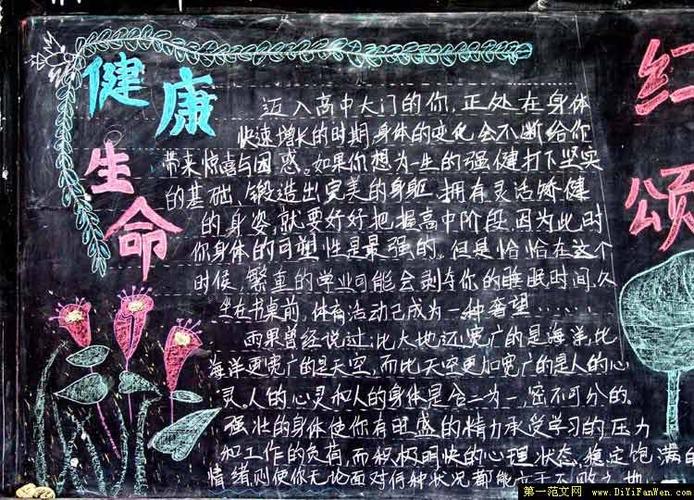 健康
生命
迈入高中大门的你,正处在身体
快速增长的时期,身体的变化会不断给你
带来惊喜与困惑。如果你想为一生的强健打下坚实
的基础、锻造出完美的身躯、拥有灵活矫健
的身姿,就要好好把握高中阶段,因为此时
你身体的可塑性是最强的。但是恰恰在这个
时候,繁重的学业可能会剥夺你的睡眠时间,久
坐在书桌前,体育活动已成为一种奢望……
雨果曾经说过:比大地还宽广的是海洋,比
海洋更宽广的是天空,而比天空更加宽广的是人的心
灵。人的心灵和人的身体是合二为一,密不可分的。
强壮的身体使你有旺盛的精力承受学习的压力
和工作的负荷,而积极明快的心理状态、稳定饱满的
情绪,则使你无论面对何种状况都能立于不败之地
红
颂
第一范文网 www.DiYiFanWen.com